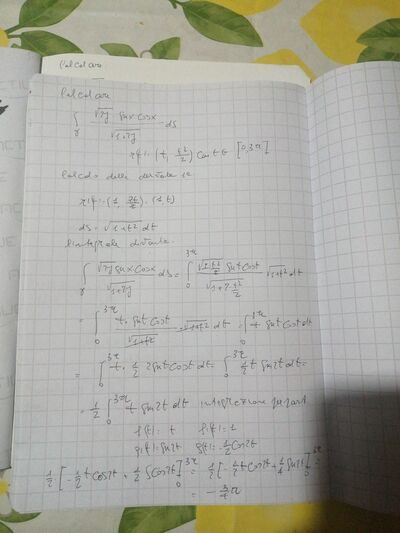 Calcolare
Calcolare
∫γ √2y sinx cosx / √1+2y ds
r(t) = (t, t²/2) con t ∈ [0,3π]
Calcolo delle derivate è
r'(t) = (1, 2t/2) = (1, t)
ds = √1+t² dt
L'integrale diventa
∫γ √2y sinx cosx / √1+2y ds = ∫₀^3π √2 t²/2 sint cost / √1+2 t²/2 √1+t² dt
= ∫₀^3π t · sint cost / √1+t² · √1+t² dt = ∫₀^3π t sint cost dt
= ∫₀^3π t · 1/2 2 sint cost dt = ∫₀^3π 1/2 t sin2t dt =
= 1/2 ∫₀^3π t sin2t dt integrazione per parti
f(t) = t f'(t) = 1
g'(t) = sin2t g(t) = -1/2 cos2t
1/2 [-1/2 t cos2t + 1/2 ∫cos2t]₀^3π = 1/2 [-1/2 t cos2t + 1/4 sin2t]₀^3π
= -3/4 π